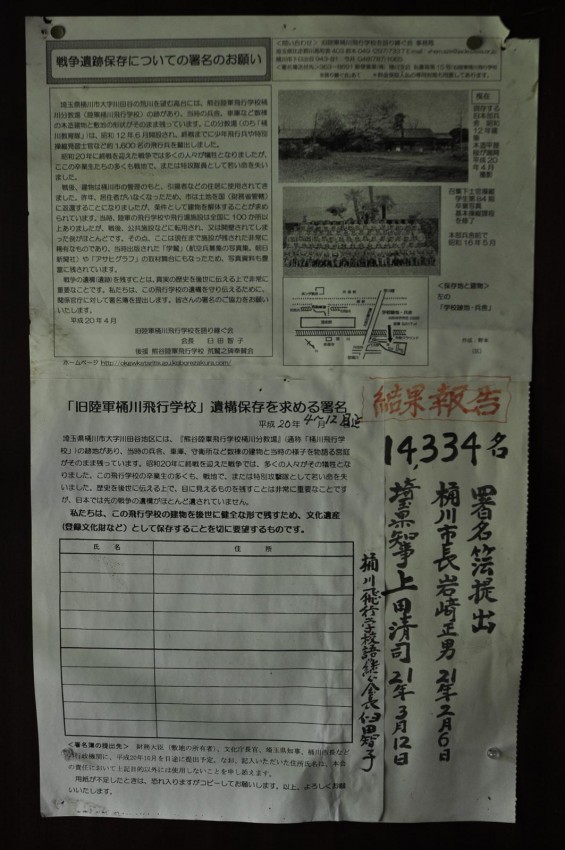 戦争遺跡保存についての署名のお願い
埼玉県桶川市大字川田谷の荒川を望む高台には、熊谷陸軍飛行学校桶川
分教場(陸軍桶川飛行学校)の跡があり、当時の兵舎、車庫など数棟
の木造建物と敷地の形状がそのまま残っています。この分教場(のち「桶
川教育隊」)は、昭和12年6月開設され、終戦までに少年飛行兵や特別
操縦見習士官など約1,600名の飛行兵を輩出しました。
昭和20年に終戦を迎えた戦争では多くの人々が犠牲となりましたが、
ここの卒業生たちの多くも戦地で、または特攻隊員として若い命を失い
ました。
戦後、建物は桶川市の管理のもと、引揚者などの住居に使用されてき
ました。昨年、居住者がいなくなったため、市は土地を国(財務省管轄)
に返還することになりましたが、条件として建物を解体することが求め
られています。当時、陸軍の飛行学校や飛行場施設は全国に100か所以
上ありましたが、戦後、公共施設などに転用され、又は開墾されてしま
った例がほとんどです。その点、ここは現在まで施設が残された非常に
稀有なものであり、当時出版された「学鷲」(航空兵募集の写真集、朝日
新聞社)や「アサヒグラフ」の取材舞台にもなったため、写真資料も豊
富に残されています。
戦争の遺構(遺跡)を残すことは、真実の歴史を後世に伝える上で非常に
重要なことです。私たちは、この飛行学校の遺構を守り伝えるために、
関係官庁に対して署名簿を提出します。皆さんの署名のご協力をお願い
いたします。
平成20年4月
旧陸軍桶川飛行学校を語り継ぐ会
会長 臼田智子
後援 熊谷陸軍飛行学校 荒鷲之碑奉賛会
<問い合わせ>旧陸軍桶川飛行学校を語り継ぐ会 事務局
現在
現存する
旧本部兵
舎 昭和
12年建築
木造平屋
桜が満開
平成20年
4月撮影
召集下士官操縦
学生第84期
卒業写真
基本操縦課程
を修了
本部兵舎前で
昭和16年5月
<保存地と建物>
左の
「学校跡地・兵舎」
「旧陸軍桶川飛行学校」遺構保存を求める署名
平成20年4〜12月迄
埼玉県桶川市大字川田谷地区には、『熊谷陸軍飛行学校桶川分教場』(通称「桶川飛行学
校」)の跡地があり、当時の兵舎、車庫、守衛所など数棟の建物と当時の様子を物語る景観
がそのまま残っています。昭和20年に終戦を迎えた戦争では、多くの人々がその犠牲とな
りました。この飛行学校の卒業生の多くも、戦地で、または特別攻撃隊として若い命を失い
ました。歴史を後世に伝える上で、目に見えるものを残すことは非常に重要なことです
が、日本では先の戦争の遺構がほとんど遺されていません。
私たちは、この飛行学校の建物を後世に健全な形で残すため、文化遺産
(登録文化財など)として保存することを切に要望するものです。
氏 名 住 所
<署名簿の提出先> 財務大臣(敷地の所有者)、文化庁長官、埼玉県知事、桶川市長など
行政機関に、平成20年10月を目途に提出予定。なお、記入いただいた住所氏名は、本会
の責任において上記目的以外には使用しないことを申し添えます。
用紙が不足したときは、恐れ入りますがコピーしてお願いします。以上、よろしくお願
いいたします。
結果報告
14,334名
署名簿提出
桶川市長 岩﨑正男 21年2月6日
埼玉県知事 上田清司 21年3月12日
桶川飛行学校語継ぐ会会長 臼田智子